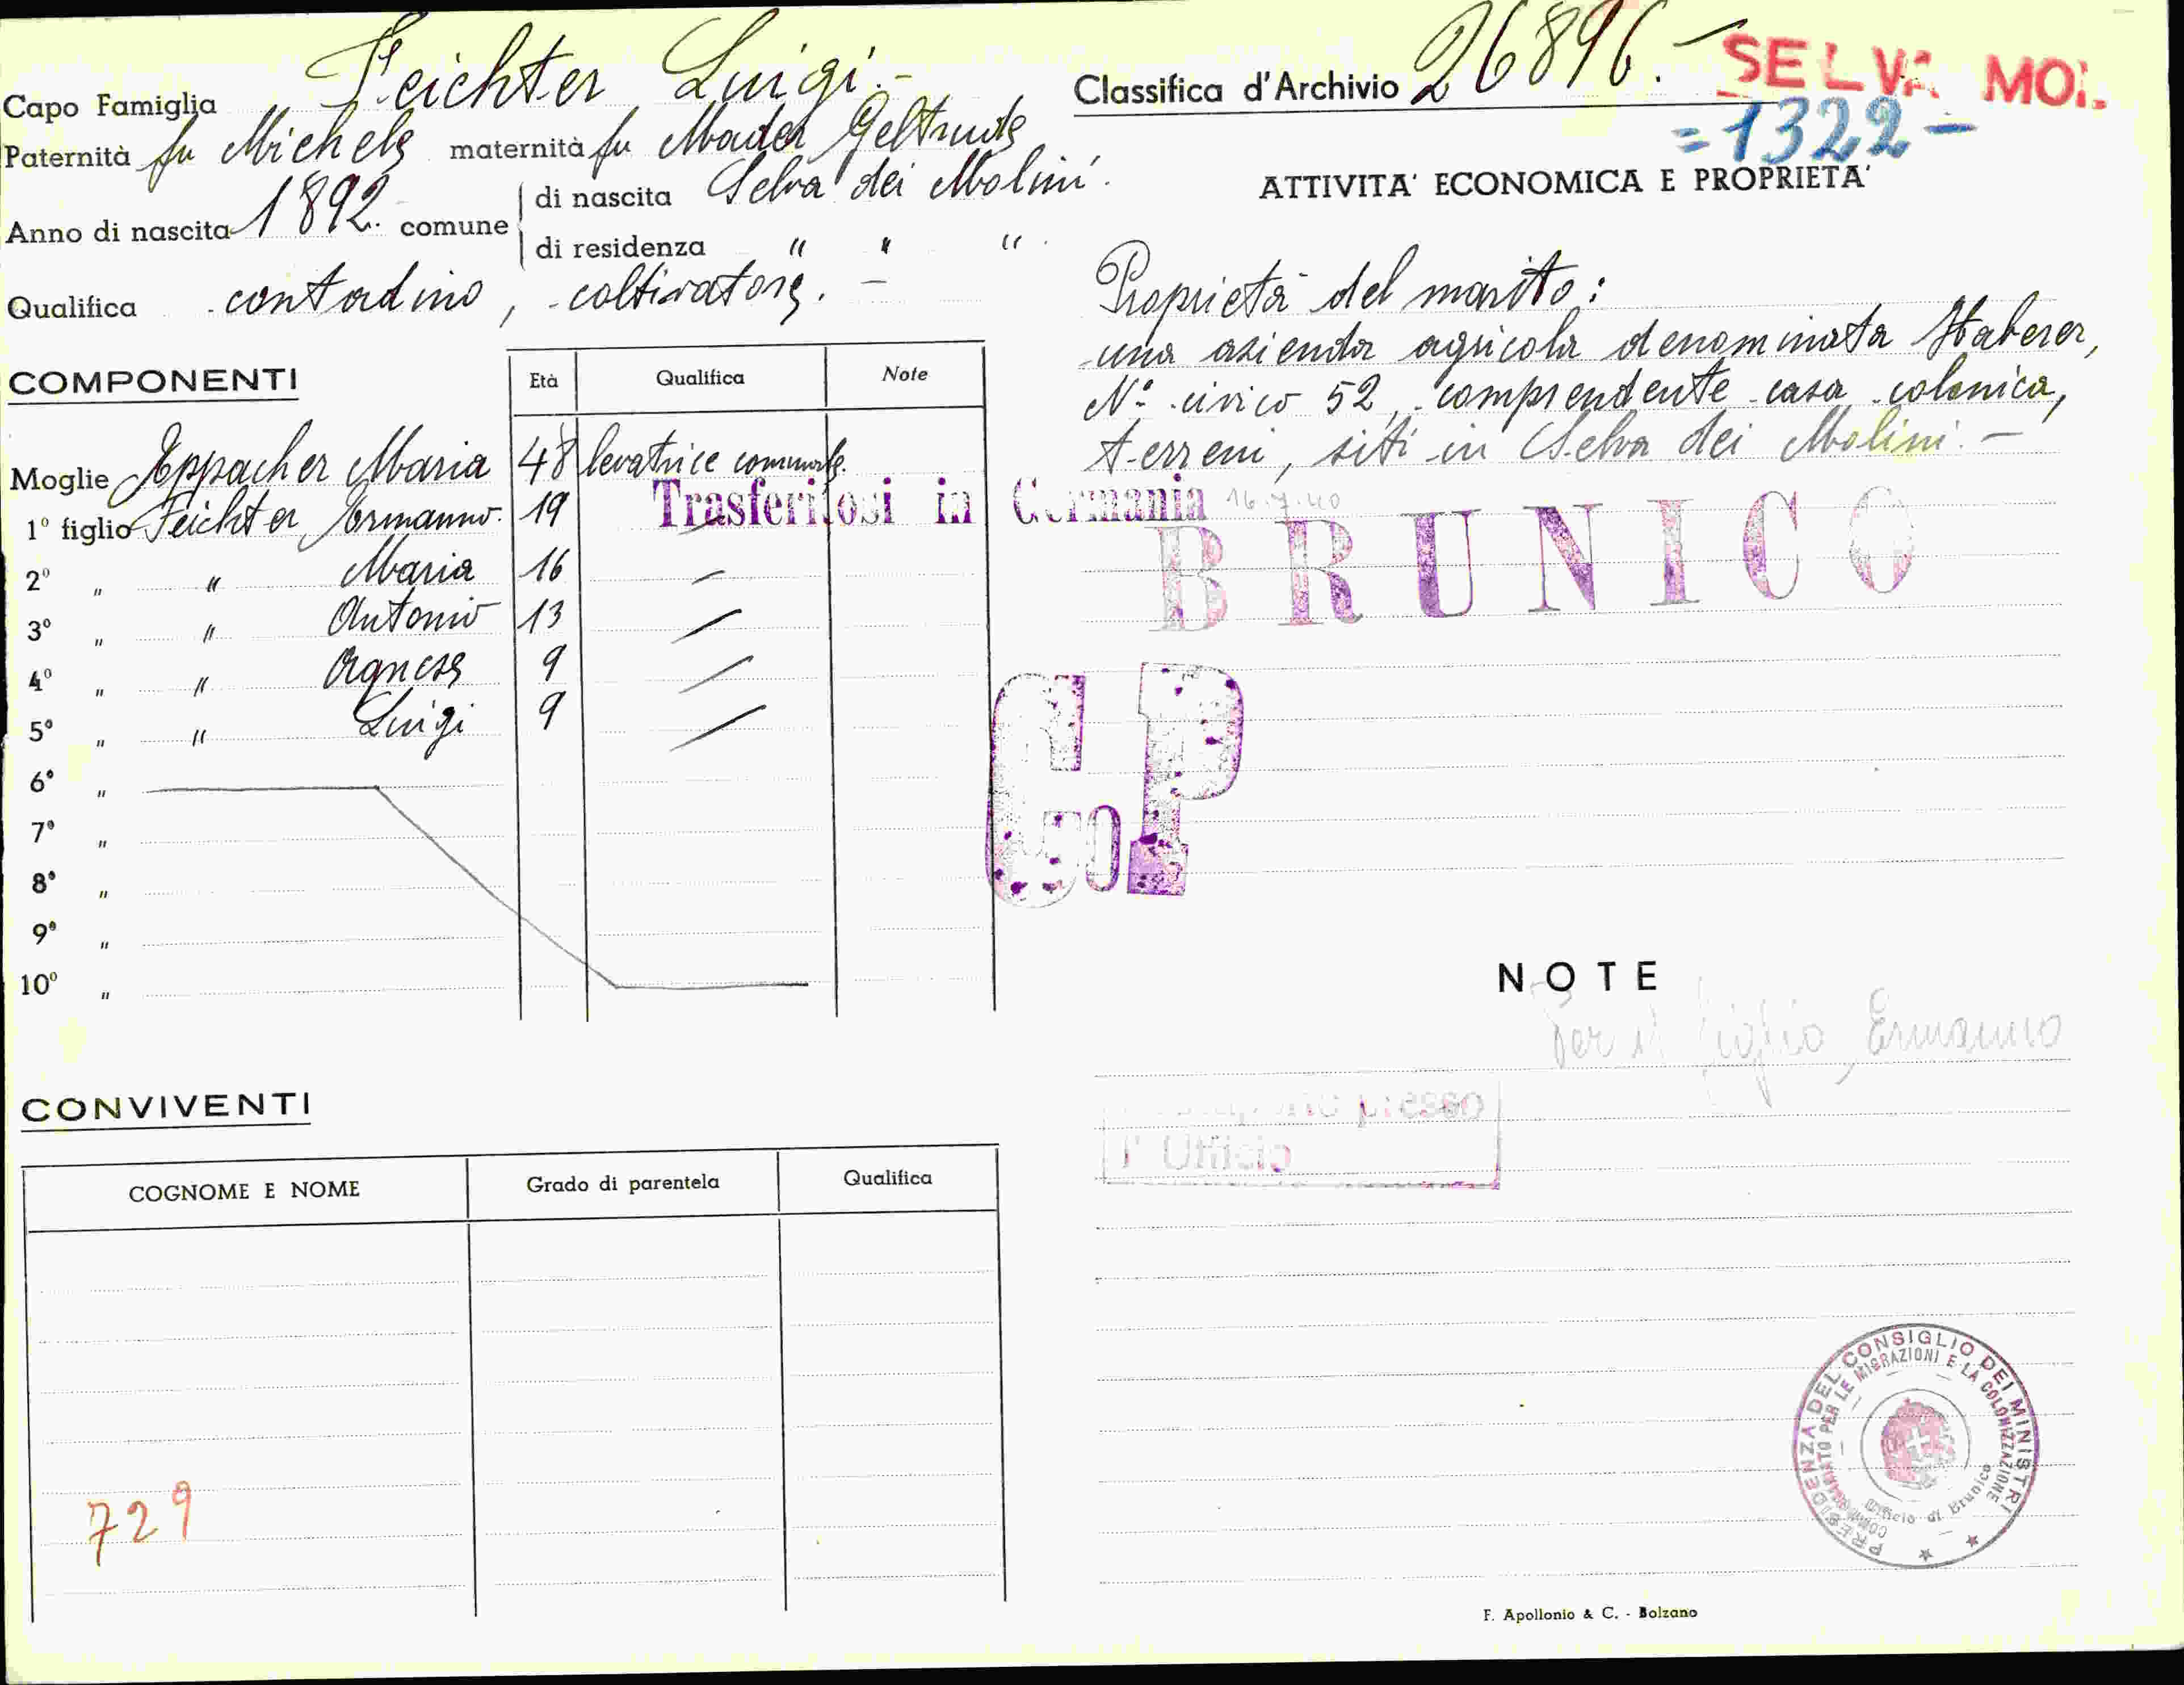 Capo Famiglia Feichter Luigi.-
Paternità fu Michele maternità fu Mader Geltrude
Anno di nascita 1892. comune di nascita Selva dei Molini.
di residenza " " " .
Qualifica contadino, coltivatore. -
COMPONENTI
Età Qualifica Note
Moglie Eppacher Maria 48 levatrice comunale.
1° figlio Feichter Ermanno. 19 -
Trasferitosi in Germania 16.7.40
2° " " Maria 16 -
3° " " Antonio 13 -
4° " " Agnese 9 -
5° " " Luigi 9 -
6° "
7° "
8° "
9° "
10° "
CONVIVENTI
COGNOME E NOME Grado di parentela Qualifica
729
Classifica d'Archivio 26896.-
SELVA MOL.
=1322-
ATTIVITA' ECONOMICA E PROPRIETA'
Proprietà del marito:
una azienda agricola denominata Haberer,
N° civico 52, comprendente casa colonica,
terreni, siti in Selva dei Molini.-
BRUNICO
NOTE
Per il figlio Ermanno
presso
l' Ufficio
PRESIDENZA DEL CONSIGLIO DEI MINISTRI
COMMISSARIATO PER LE MIGRAZIONI E LA COLONIZZAZIONE
Ufficio di Brunico
F. Apollonio & C. - Bolzano